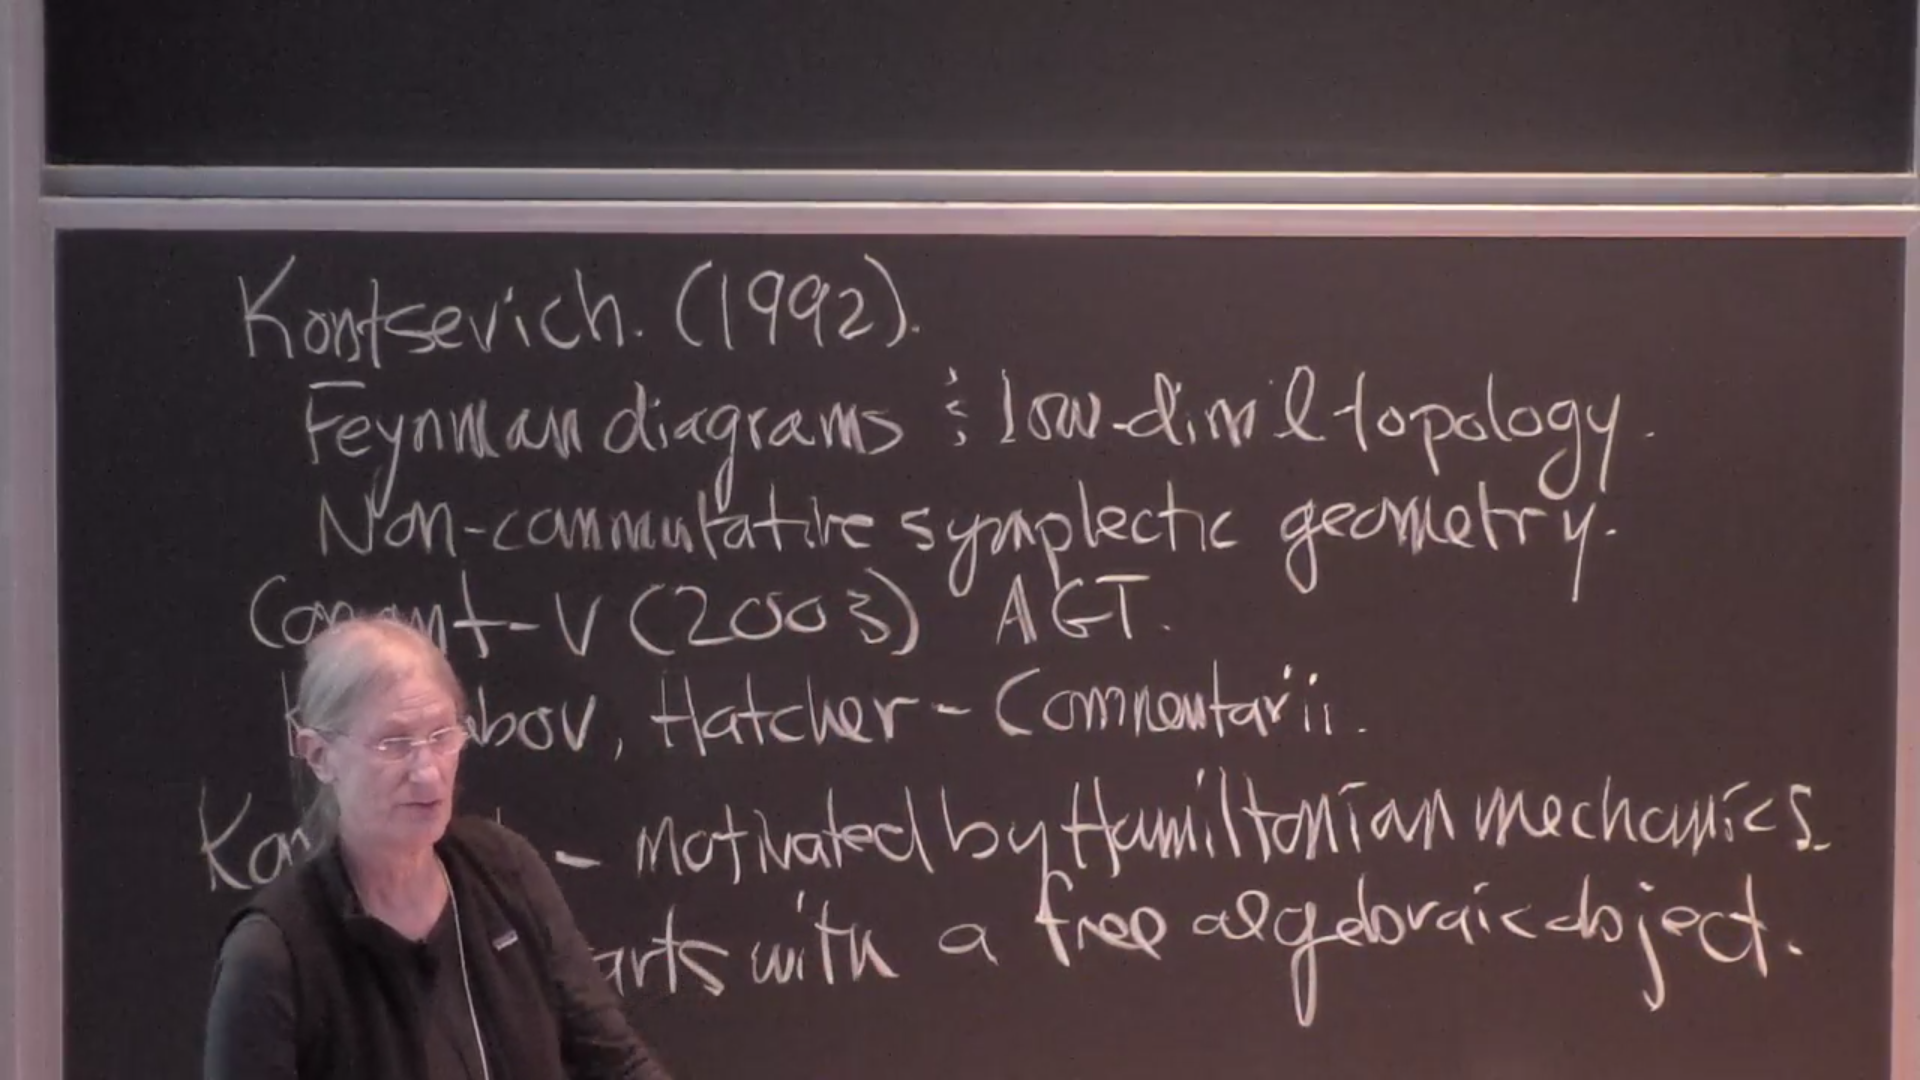 Kontsevich. (1992).
Feynman diagrams & low-dim'l topology.
Non-commutative symplectic geometry.
-V (2003) AGT.
, Hatcher - Commentarii.
- motivated by Hamiltonian mechanics.
with a free algebraic object.